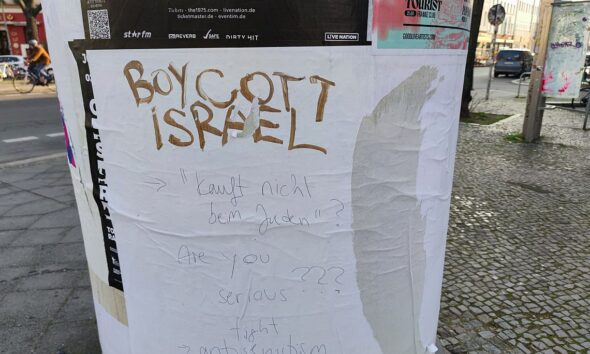 Tickets - the1975.com - livenation.de
ticketmaster.de - eventim.de
star fm
REVERB
DIRTY HIT
LIVE NATION
TOURIST
BOYCOTT
ISRAEL
→ "Kauft nicht
beim Juden"?
Are you
serious ???
fight
→ antisemitism